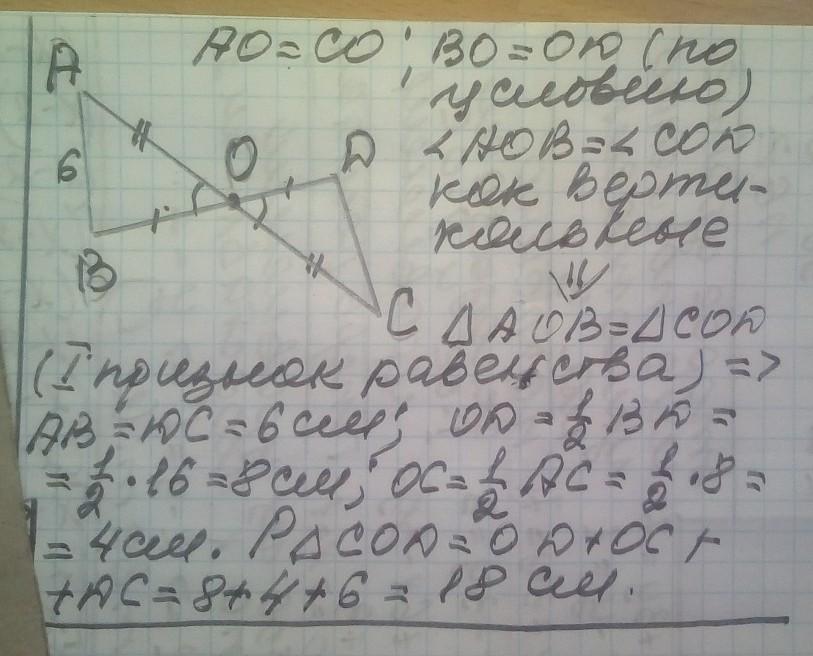 A
AO = CO; BO = OD (по
условию)
6
O
D
∠AOB = ∠COD
как верти-
кальные
B
⇓
C
△AOB = △COD
(I признак равенства) =>
AB = DC = 6 см; OD = 1/2 BD =
= 1/2 · 16 = 8 см; OC = 1/2 AC = 1/2 · 8 =
= 4 см. P△COD = OD + OC +
+ DC = 8 + 4 + 6 = 18 см.